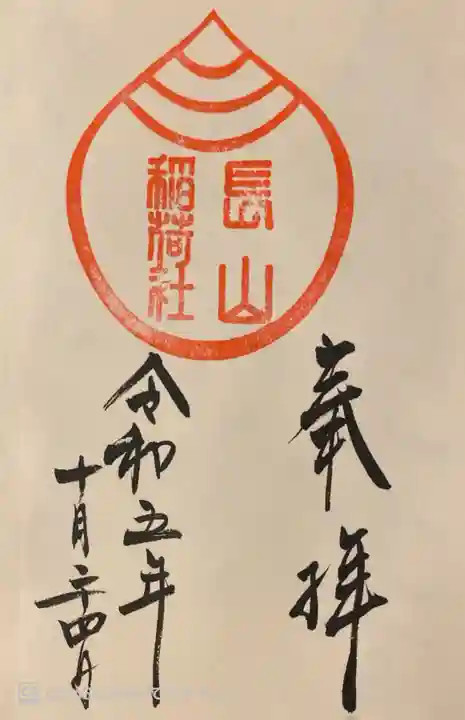 長山
稲荷社
奉拝
令和五年
十月二十四日